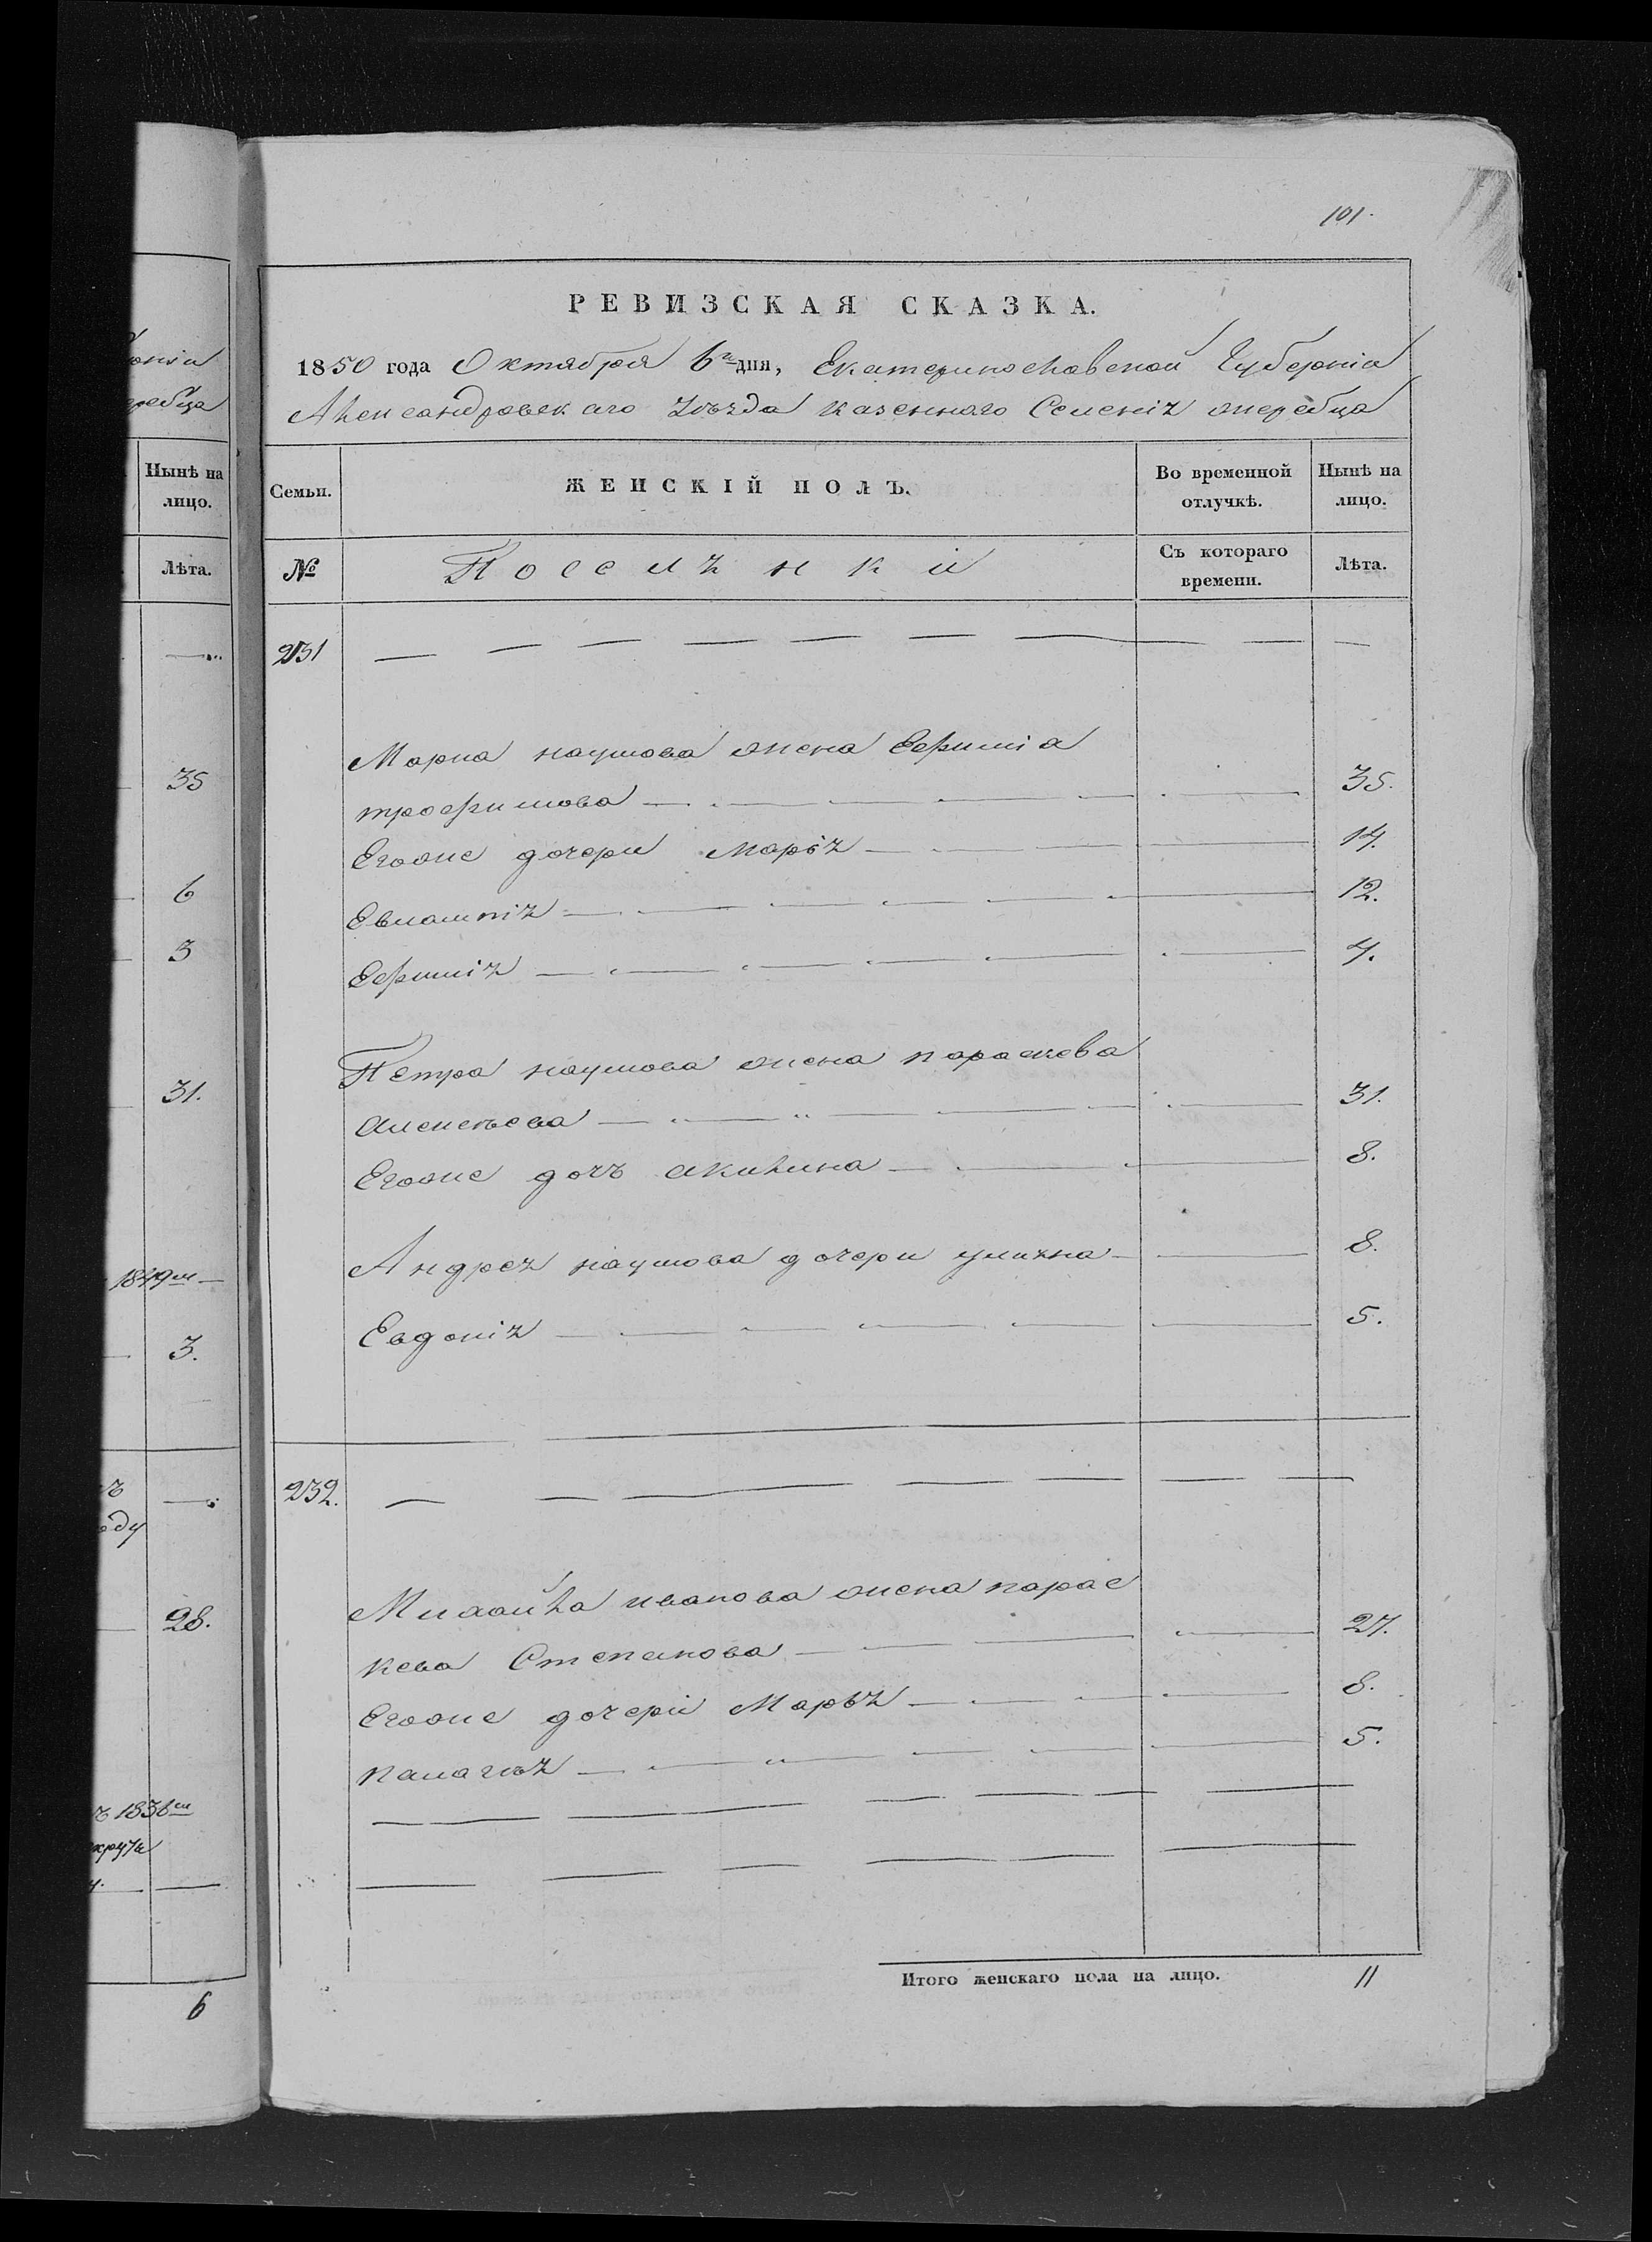 101.
РЕВИЗСКАЯ СКАЗКА.
1850 года Октября 6го дня, Екатеринославской Губерніи
Александровскаго Уѣзда казеннаго Селенія жеребца
Семьи.
ЖЕНСКІЙ ПОЛЪ.
Во временной отлучкѣ.
Нынѣ на лицо.
№
Поселянки
Съ котораго времени.
Лѣта.
231
Марка наумова жена Ефиміа
трофимова 35.
Егоже дочери Марія 14.
Евлампія 12.
Ефимія 4.
Петра наумова жена параскева
алексѣева 31.
Егоже дочь акилина 8.
Андрея наумова дочери улияна 8.
Евдокія 5.
232.
Михайла иванова жена парас
кева Степанова 27.
Егоже дочери Марья 8.
палагѣя 5.
Итого женскаго пола на лицо. 11
Нынѣ на
лицо.
Лѣта.
35
6
3
31.
1849м
3.
еду
28.
1836м
6